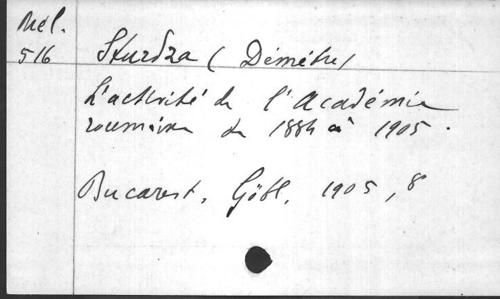 Mél.
516
Sturdza (Démètre)
L'activité de l'Académie
roumaine de 1884 à 1905.
Bucarest, Göbl, 1905, 8°